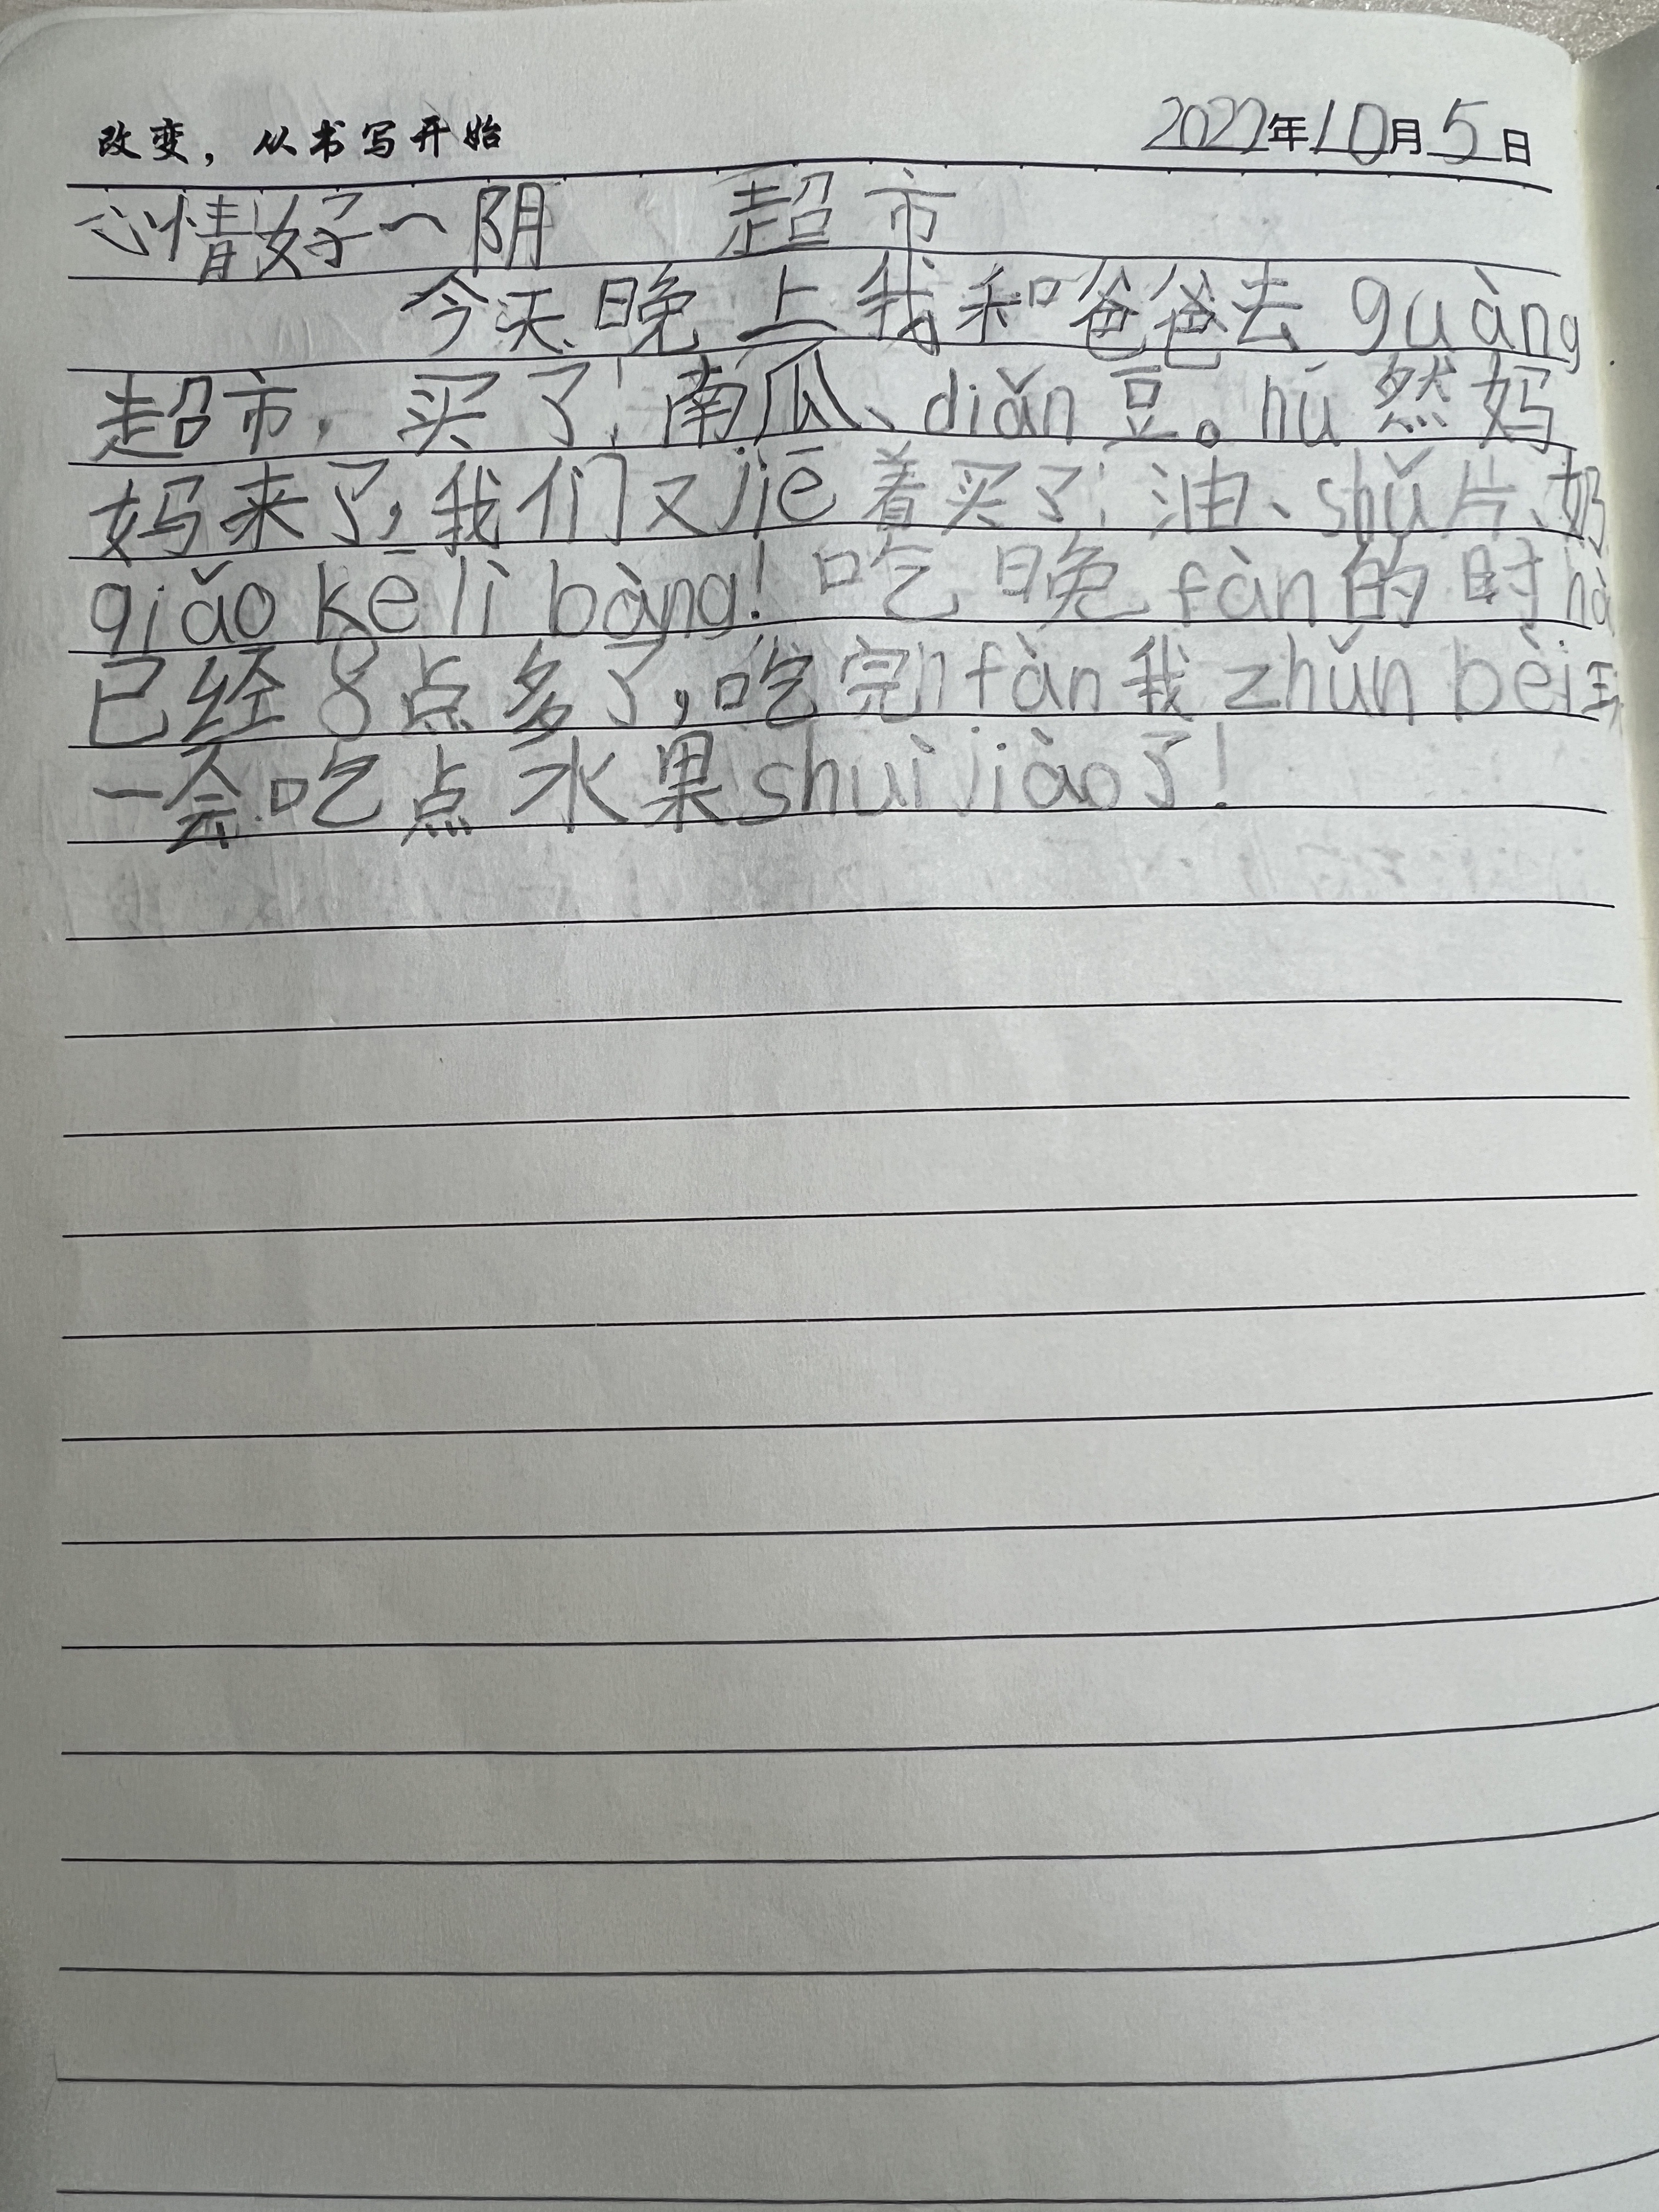 改变，从书写开始 2022年10月5日
心情好～阴 超市
今天晚上我和爸爸去guàng
超市，买了！南瓜、diǎn豆。hū然妈
妈来了，我们又jiē着买了！油、shǔ片、奶
qiǎo kē lì bàng！吃晚fàn的时hò
已经8点多了，吃完fàn我zhǔn bèi玩
一会吃点水果shuì jiào了！